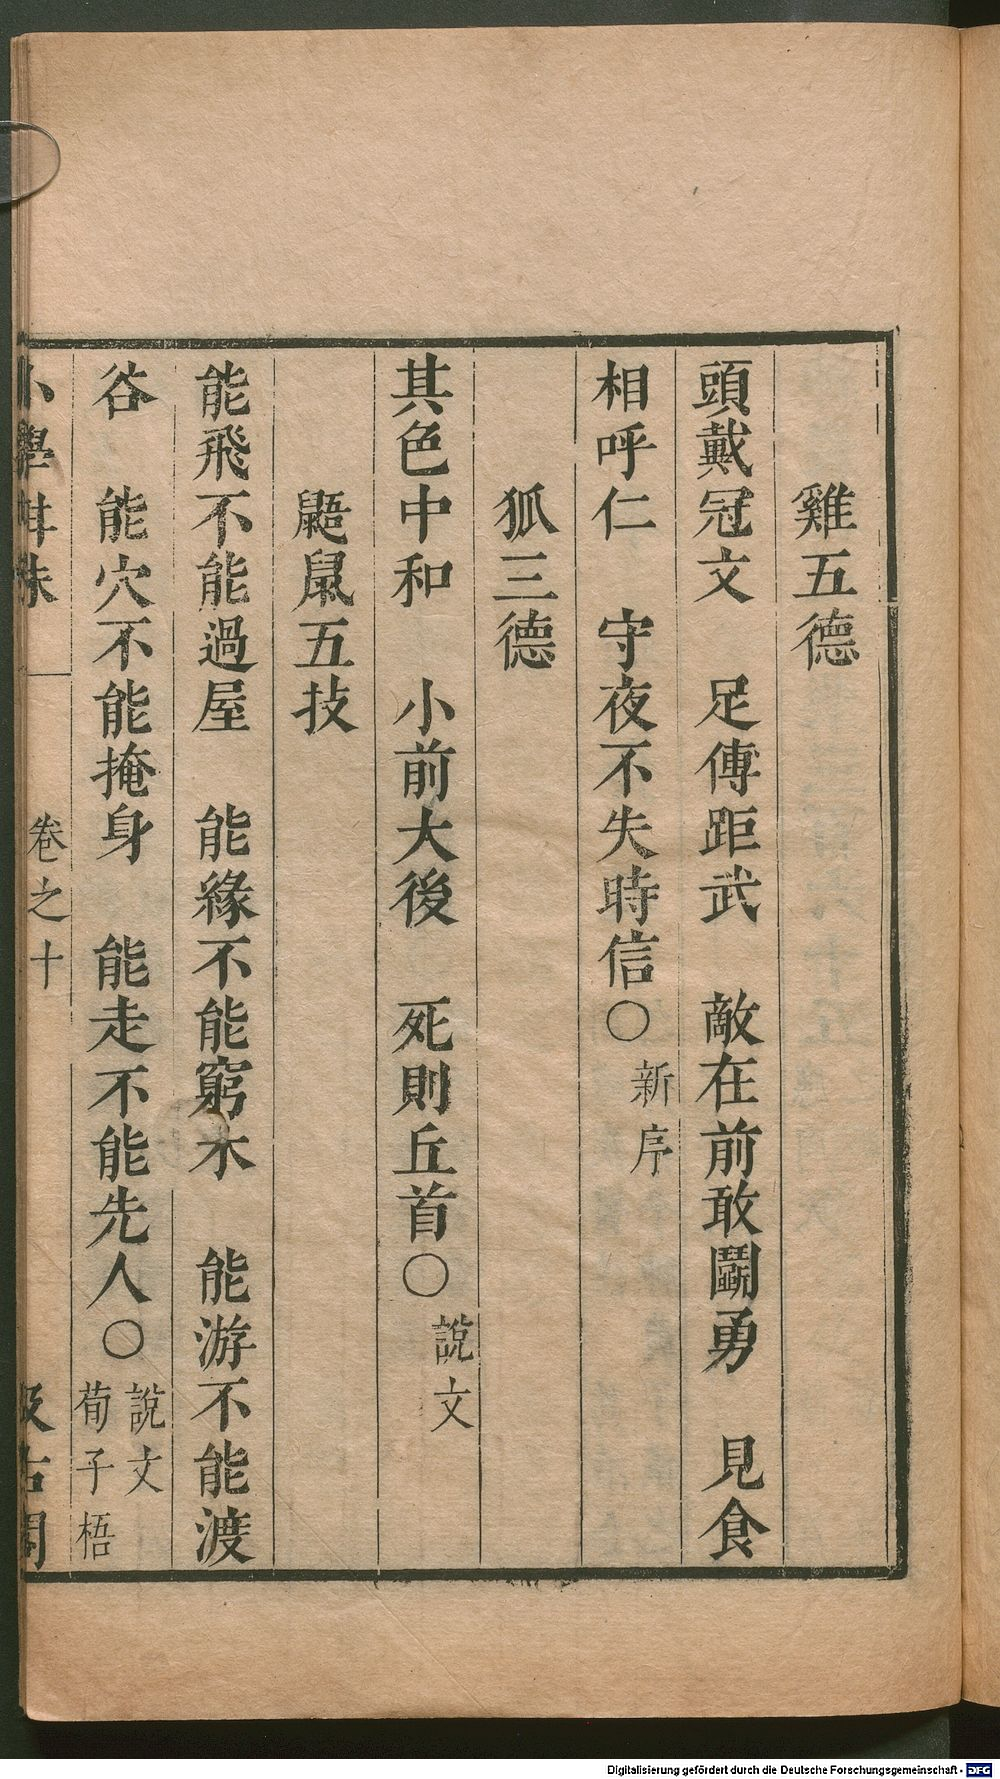 雞五德
頭戴冠文　足傳距武　敵在前敢鬬勇　見食
相呼仁　守夜不失時信〇新序
狐三德
其色中和　小前大後　死則丘首〇說文
鼯鼠五技
能飛不能過屋　能緣不能窮木　能游不能渡
谷　能穴不能掩身　能走不能先人〇說文荀子梧
小學紺珠　卷之十　汲古閣
Digitalisierung gefördert durch die Deutsche Forschungsgemeinschaft - DFG